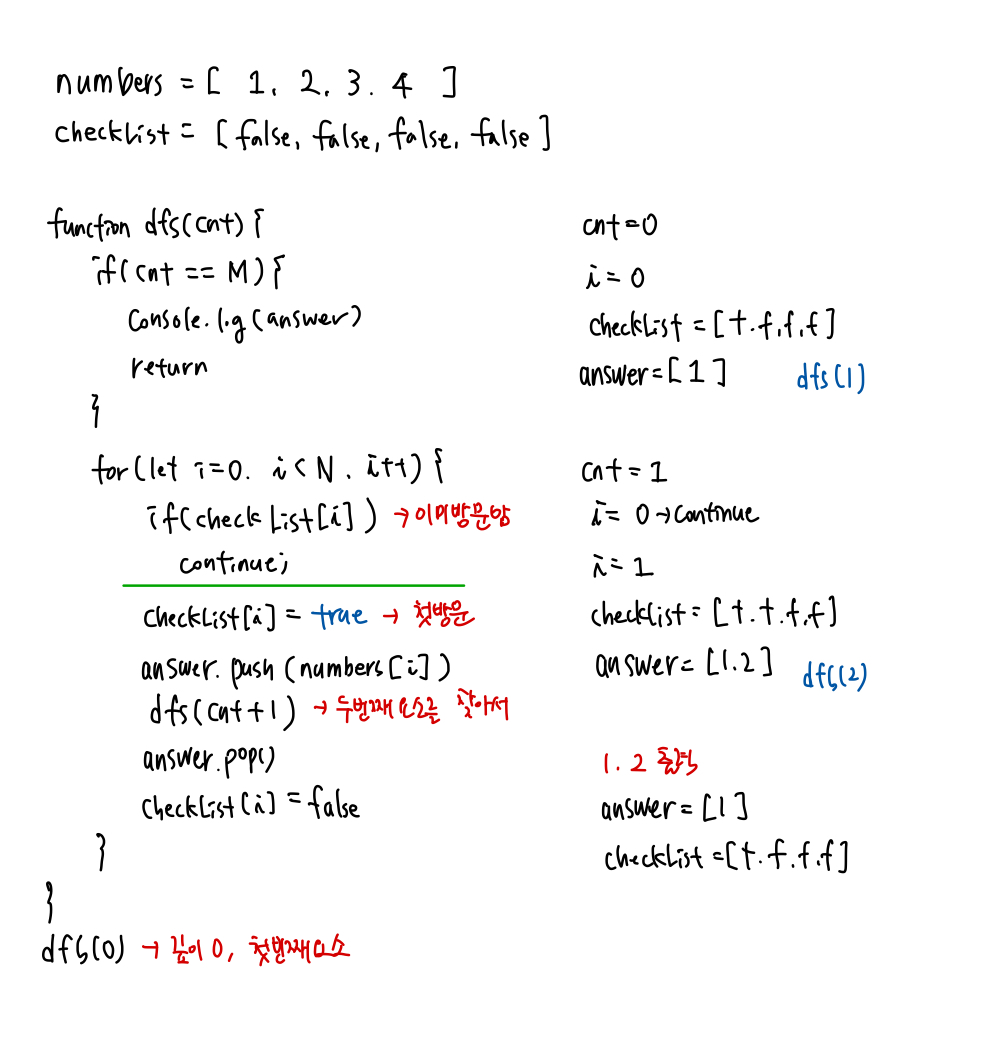 numbers = [ 1, 2, 3. 4 ]
checkList = [false, false, false, false]
function dfs(cnt){
if(cnt == M){
console.log(answer)
return
}
for(let i=0. i<N. i++){
if(checkList[i]) → 이미방문함
continue;
checkList[i] = true → 첫방문
answer.push(numbers[i])
dfs(cnt+1) → 두번째요소를 찾아서
answer.pop()
checkList[i] = false
}
}
dfs(0) → 깊이 0, 첫번째요소
cnt=0
i=0
checkList = [t.f.f.f]
answer=[1] dfs(1)
cnt = 1
i= 0→continue
i= 1
checkList = [t.t.f.f]
answer= [1.2] dfs(2)
1. 2 출력
answer = [1]
checkList =[t.f.f.f]